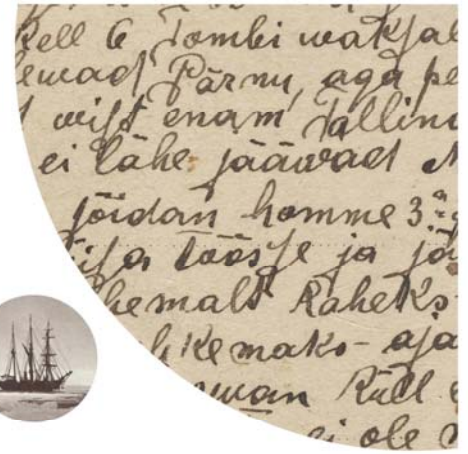 kell 6 Tombi waksal
lewad Pärnu, aga pe
wist enam Tallinn
ei lähe jääwad
sõidan homme 3
töösse ja jä
hemalt kaheks
kemaks - aja
wan küll
ei ole